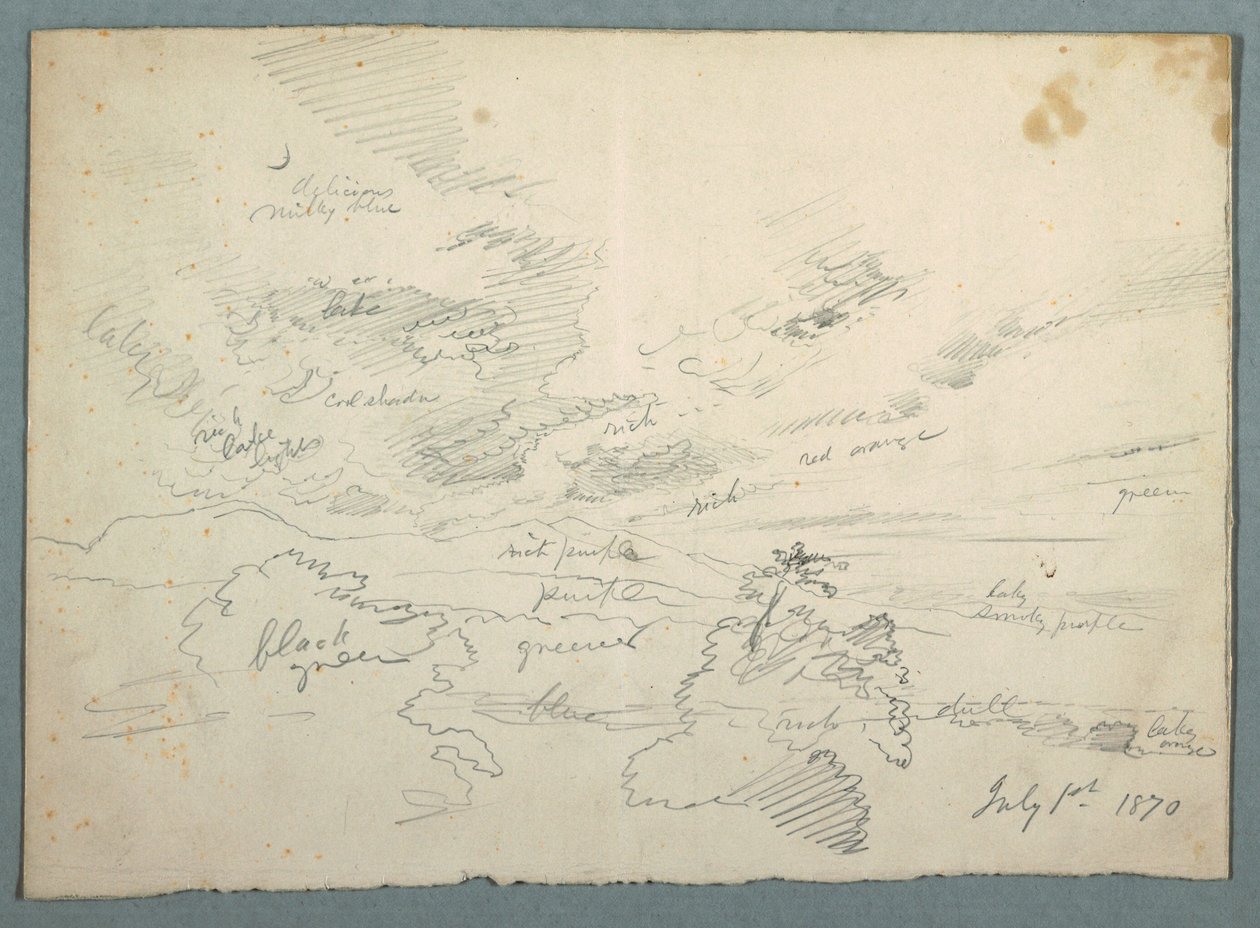 delicious
milky blue
lake
laky
cool shadow
rich
lake
lights
rich
red orange
rich
green
rich purple
purple
laky
smoky purple
black
green
greener
blue
rich
dull
laky
orange
July 1st 1870